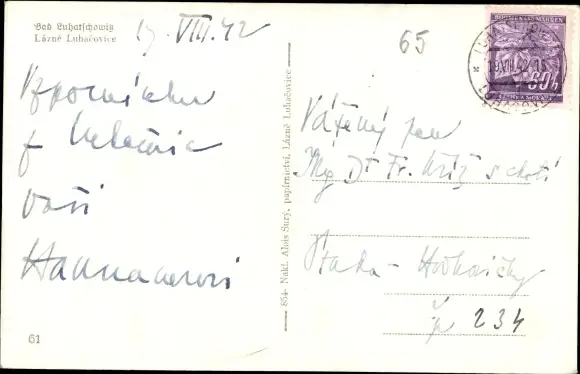 Bad Luhatschowitz
Lázně Luhačovice
17. VIII. 42
65
Vzpomínku
z Luhačovic
Vaši
864- Nakl. Alois Surý, papírnictví, Lázně Luhačovice
Vážený pan
Mg Dr Fr. Kříž s chotí
Praha-
čp 234
61
BÖHMEN UND MÄHREN
60h
ČECHY A MORAVA
19.VIII.42